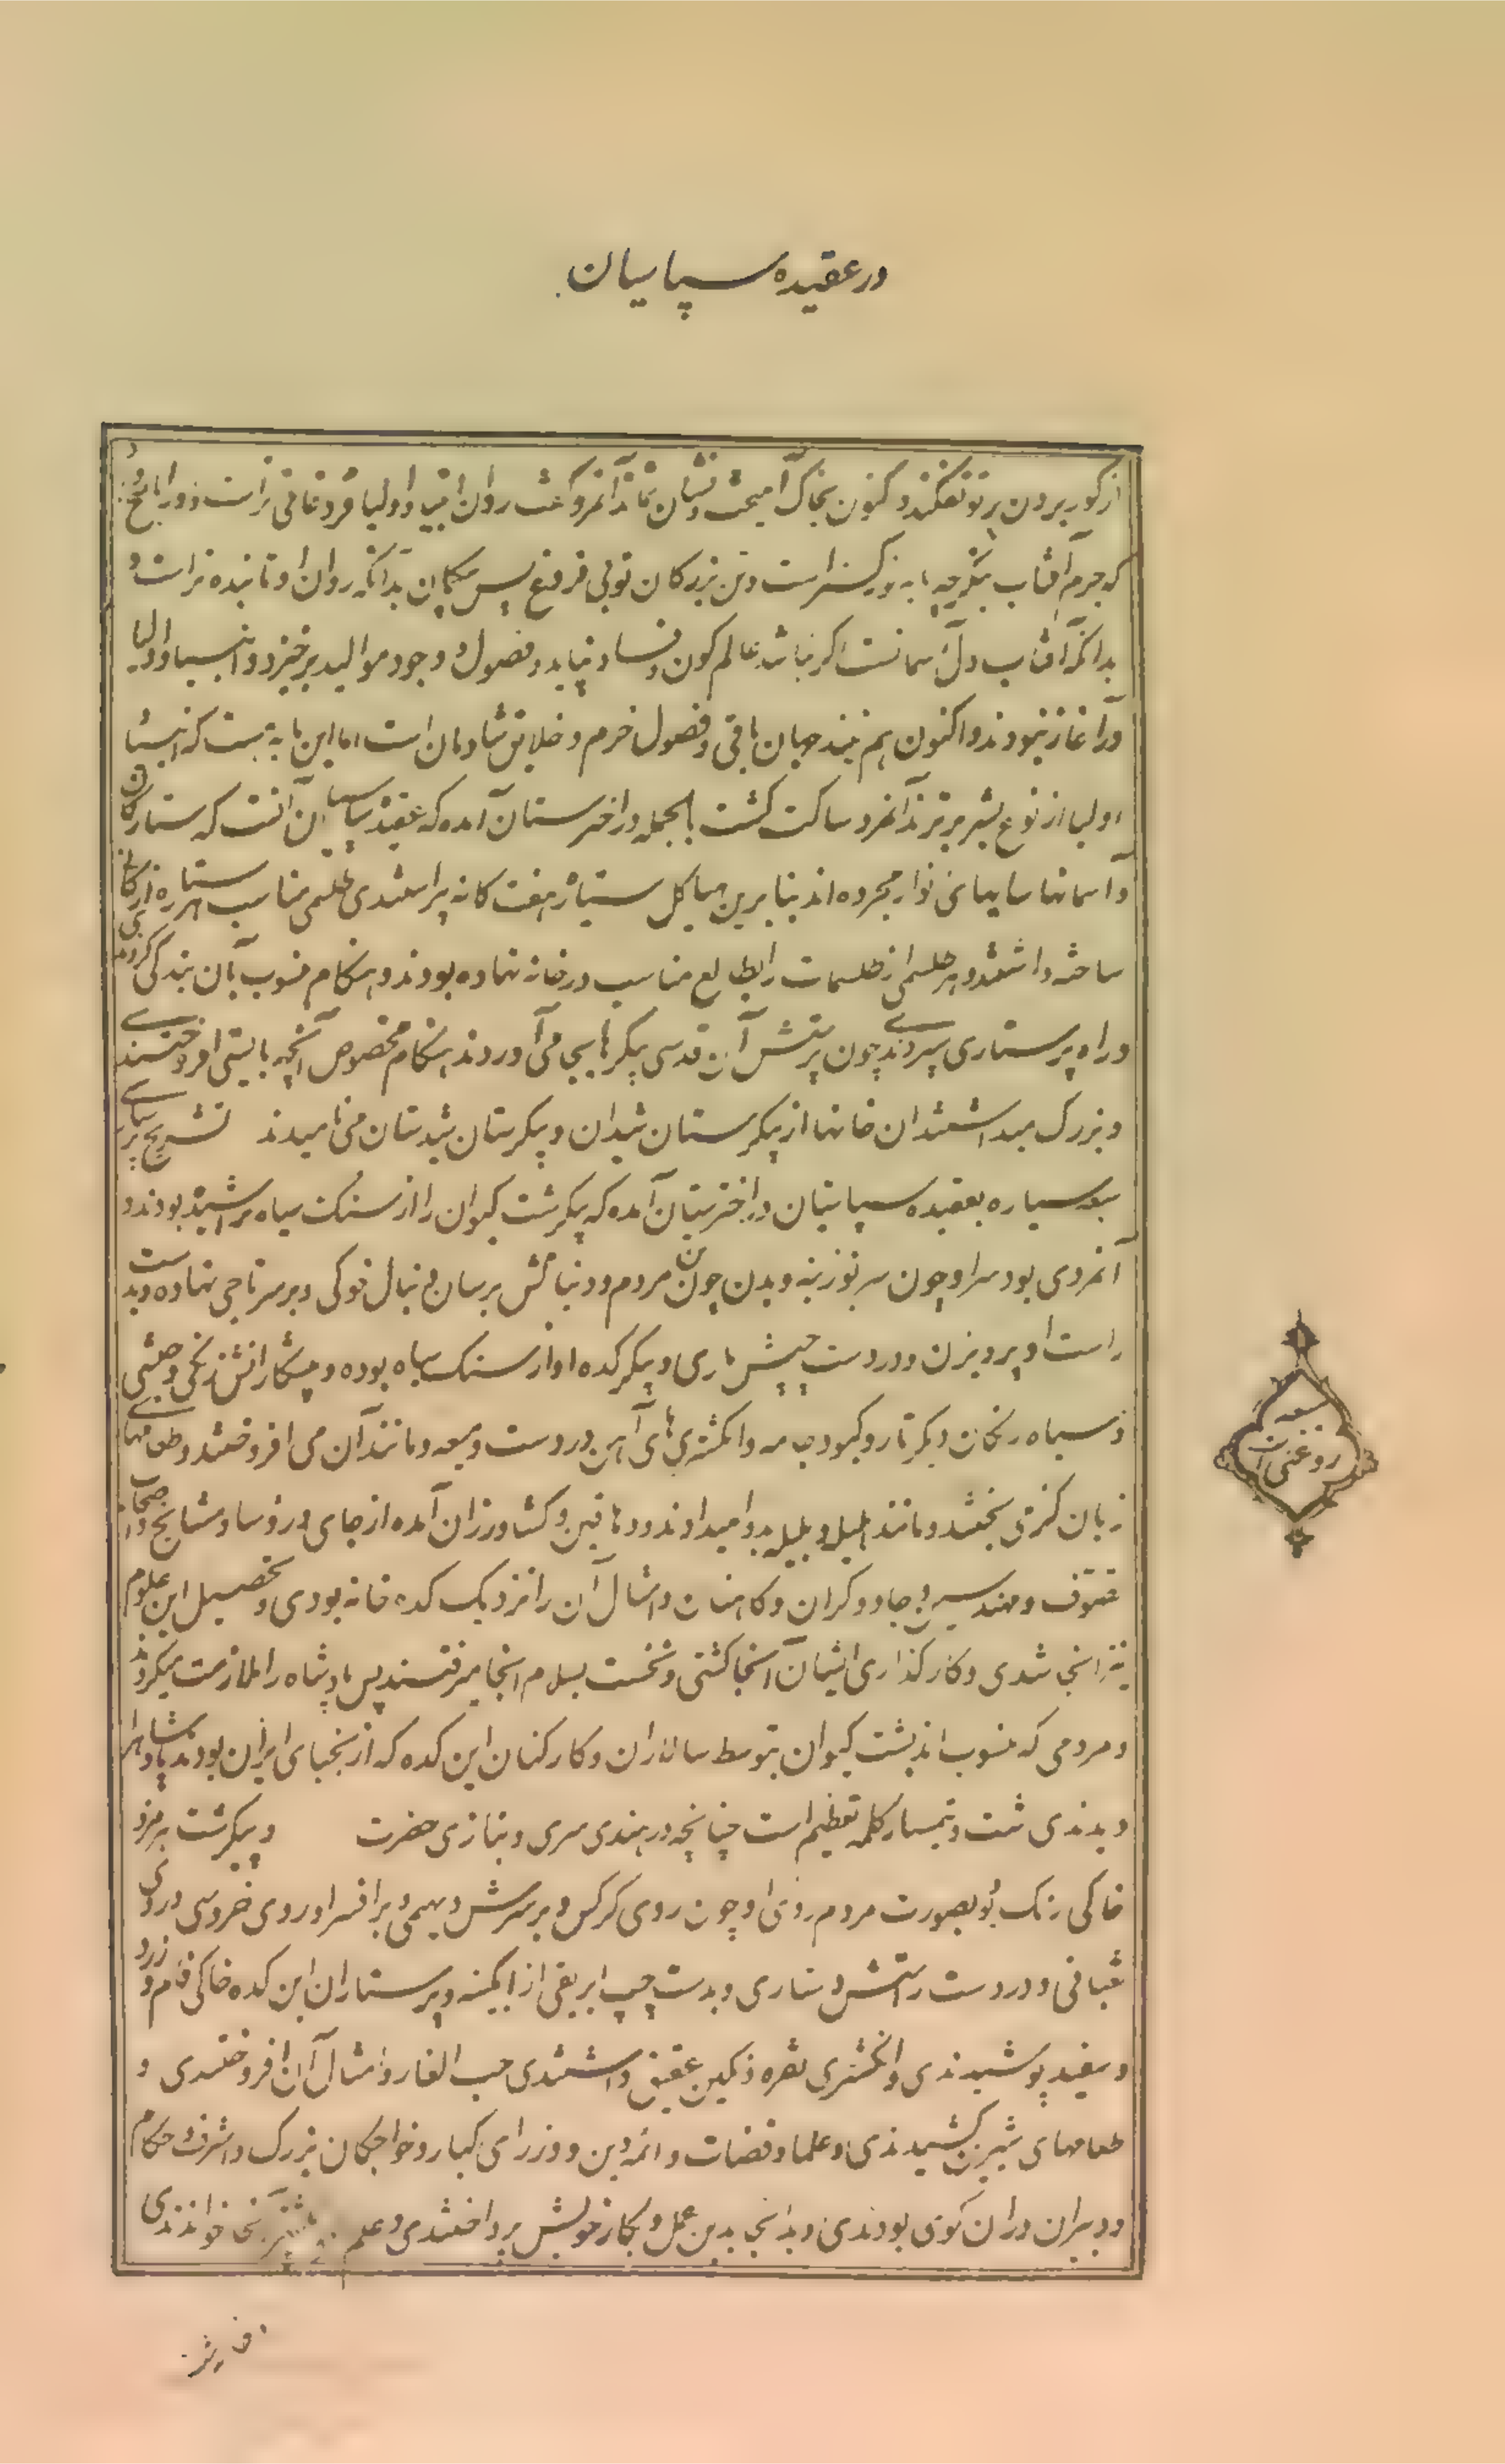 در عقیده سپاسیان
از کور بیرون پرتو نفکند و کنون بخاک آمیخت و نشان نماند آنمرد گفت روان انبیا و اولیا فروغانی تر است زود را پاسخ
که جرم آفتاب بنگر چه پایه نور گستر است و تن بزرگان تو بی فروغ پس بیگمان بدانکه روان او تابنده تر است و
بدانکه آفتاب دل آسمانست اگر نباشد عالم کون و فساد نپاید و فصول و وجود موالید برخیزد و انبیا و اولیا
در آغاز نبودند و اکنون هم نیند جهان باقی و فصول خرم و خلایق شادمان است اما این مایه هست که انبیا
اولیا از نوع بشر برترند آنمرد ساکت گشت بالجمله در اخترستان آمده که عقیده سپاسیان آنست که ستارگان
و آسمانها سایهای انوار مجرده اند بنابرین هیاکل سیاره هفت گانه پیراستندی طلسمی مناسب هر ستاره از کانی
ساخته داشتند و هر طلسمی از طلسمات را بطالع مناسب در خانه نهاده بودند و هنگام منسوب بآن بندگی کردندی
و راه پرستاری سپردندی چون پرستش آن قدسی پیکرها بجا می آوردند هنگام مخصوص آنچه بایستی افروختندی
و بزرگ میداشتند ان خانها از پیکرستان شیدان و پیکرستان شیدستان می نامیدند تشریح پرستاری
سبعه سیاره بعقیده سپاسیان در اخترستان آمده که پیکر شت کیوان را از سنگ سیاه تراشیده بودند و
آنمردی بود سر او چون سر بوزینه و بدن چون تن مردم و دنبالش برسان دنبال خوکی و بر سر تاجی نهاده و بدست
راست او پرویزن و در دست چپش ماری و پیکر کده او از سنگ سیاه بوده و پیشکارانش زنگی و حبشی
و سیاه رنگان دیگر تار و کبود جامه و انگشتری های آهن در دست و میعه و مانند آن می افروختند و طعامها
زبان گزی پختند و مانند هلیله و بلیله بدوا میدادند و دهاقین و کشاورزان آمده از جای و روسا و مشایخ و اصحاب
تصوف و مهندسین و جادوگران و کاهنان و امثال آن را نزدیک کده خانه بودی و تحصیل این علوم
نیز انجا شدی و کارگذاری ایشان آنجا کشتی و نخست بسلام آنجا میرفتند پس پادشاه را ملازمت میکردند
و مردمی که منسوب اند بشت کیوان بتوسط سالاران و کارکنان این کده که از نجبای ایران بودند پادشاه را
دیدندی شت و تیمسار کلمه تعظیم است چنانچه در هندی سری و بتازی حضرت و پیکر شت هرمزد
خاکی رنگ بود بصورت مردم روی او چون روی کرکس و بر سرش دیهیمی و بر افسر او روی خروسی و روی
ثعبانی و در دست راستش دستاری و بدست چپ ابریقی از آبگینه و پرستاران این کده خاکی فام و زرد
و سفید پوشیدندی و انگشتری نقره و نگین عقیق داشتندی حب الغار و امثال آن افروختندی و
طعامهای شیرین کشیدندی و علما و قضات و ائمه دین و وزرای کبار و خواجگان بزرگ و اشراف و حکام
و دبیران در ان کوی بودندی و بدانجا بدین عمل و بکار خویش پرداختندی و علم بیشتر آنجا خواندندی
سبعه
روغنی است